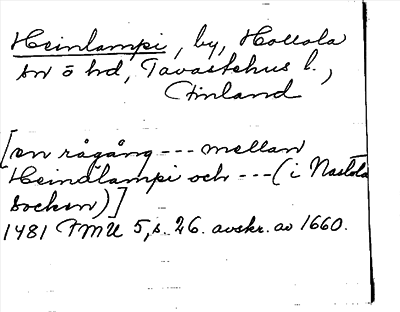 Heinlampi, by, Hollola
sn o hd, Tavastehus l.,
Finland
[en rågång --- mellan
Heinälampi och --- (i Nastola
socken)]
1481 FMU 5, s. 26. avskr. av 1660.